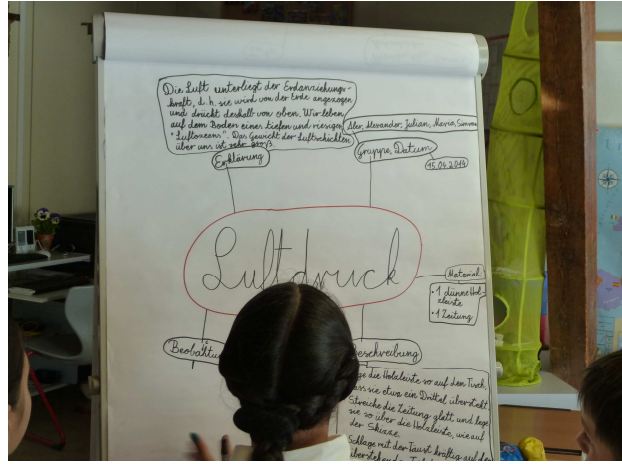 Die Luft unterliegt der Erdanziehungs-
kraft, d.h. sie wird von der Erde angezogen
und drückt deshalb von oben. Wir leben
auf dem Boden eines tiefen und riesigen
"Luftozeans". Das Gewicht der Luftschichten
über uns ist sehr groß.
Erklärung
Alex, Alexander, Julian, Maria, Simon
Gruppe, Datum
15.04.2014
Luftdruck
Material
• 1 dünne Hol-
zleiste
• 1 Zeitung
Beobachtu
Beschreibung
ge die Holzleiste so auf den Tisch,
ass sie etwa ein Drittel übersteht.
Streiche die Zeitung glatt und lege
sie so über die Holzleiste, wie auf
der Skizze.
Schlage mit der Faust kräftig auf